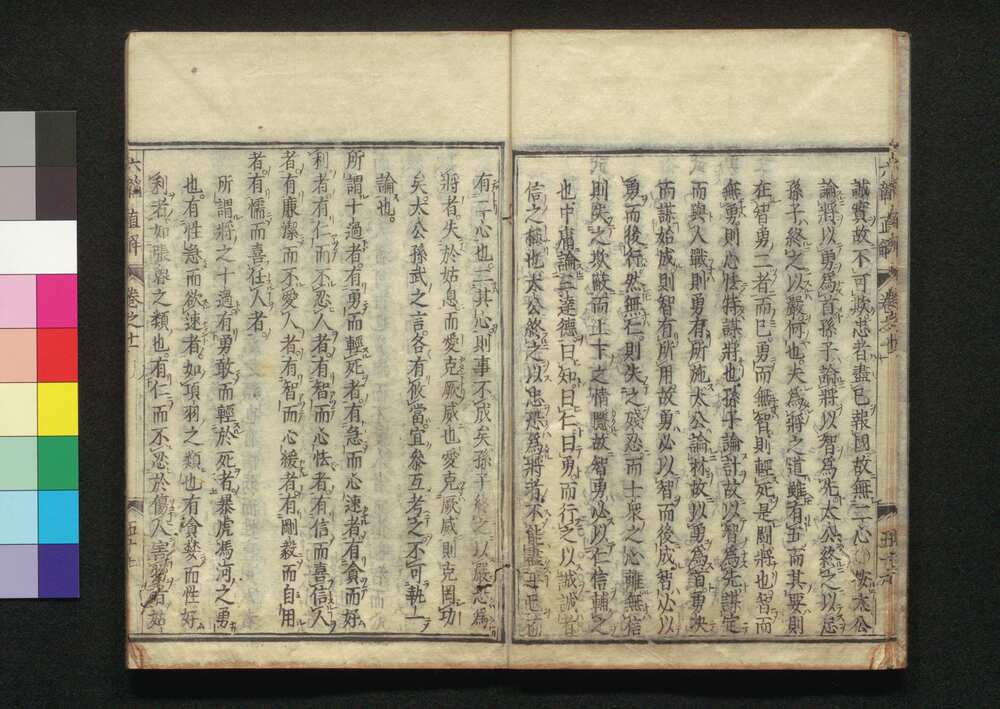 誠實故不可欺忠者盡已報國故無二心太公
論將以勇為首孫子論將以智為先太公終之以忠
孫子終之以嚴何也夫為將之道雖有五而其要則
在智勇二者而已勇而無智則輕死是鬪將也智而
無勇則心怯特謀將也孫子論計故以智為先謀定
而與人戰則勇有所施太公論材故以勇為首勇決
而謀始成則智有所用故勇必以智而後成智必以
勇而後行然無仁則失之殘忍而士眾之心離無信
則失之欺蘇而上下之情隱故智勇必以仁信輔之
也中庸論三達德曰知曰仁曰勇而行之以誠誠者
信之極也太公終之以忠恐為將者不能盡
有二心也二其心則事不成矣孫子終之以嚴恐為
將者失於姑息而愛克厥威也愛克厥威則克罔功
矣太公孫武之言各有攸當宜參互考之不可執一
論也
所謂十過者有勇而輕死者有急而心速者有貪而好
利者有仁而不忍人者有智而心怯者有信而喜信人
者有廉潔而不愛人者有智而心緩者有剛毅而自用
者有懦而喜任人者
所謂將之十過有勇敢而輕於死者暴虎馮河之勇
也有性急而欲速者如項羽之類也有貪婪而性好
利者如張之類也有仁而不忍於傷人害
六韜直解 卷之十